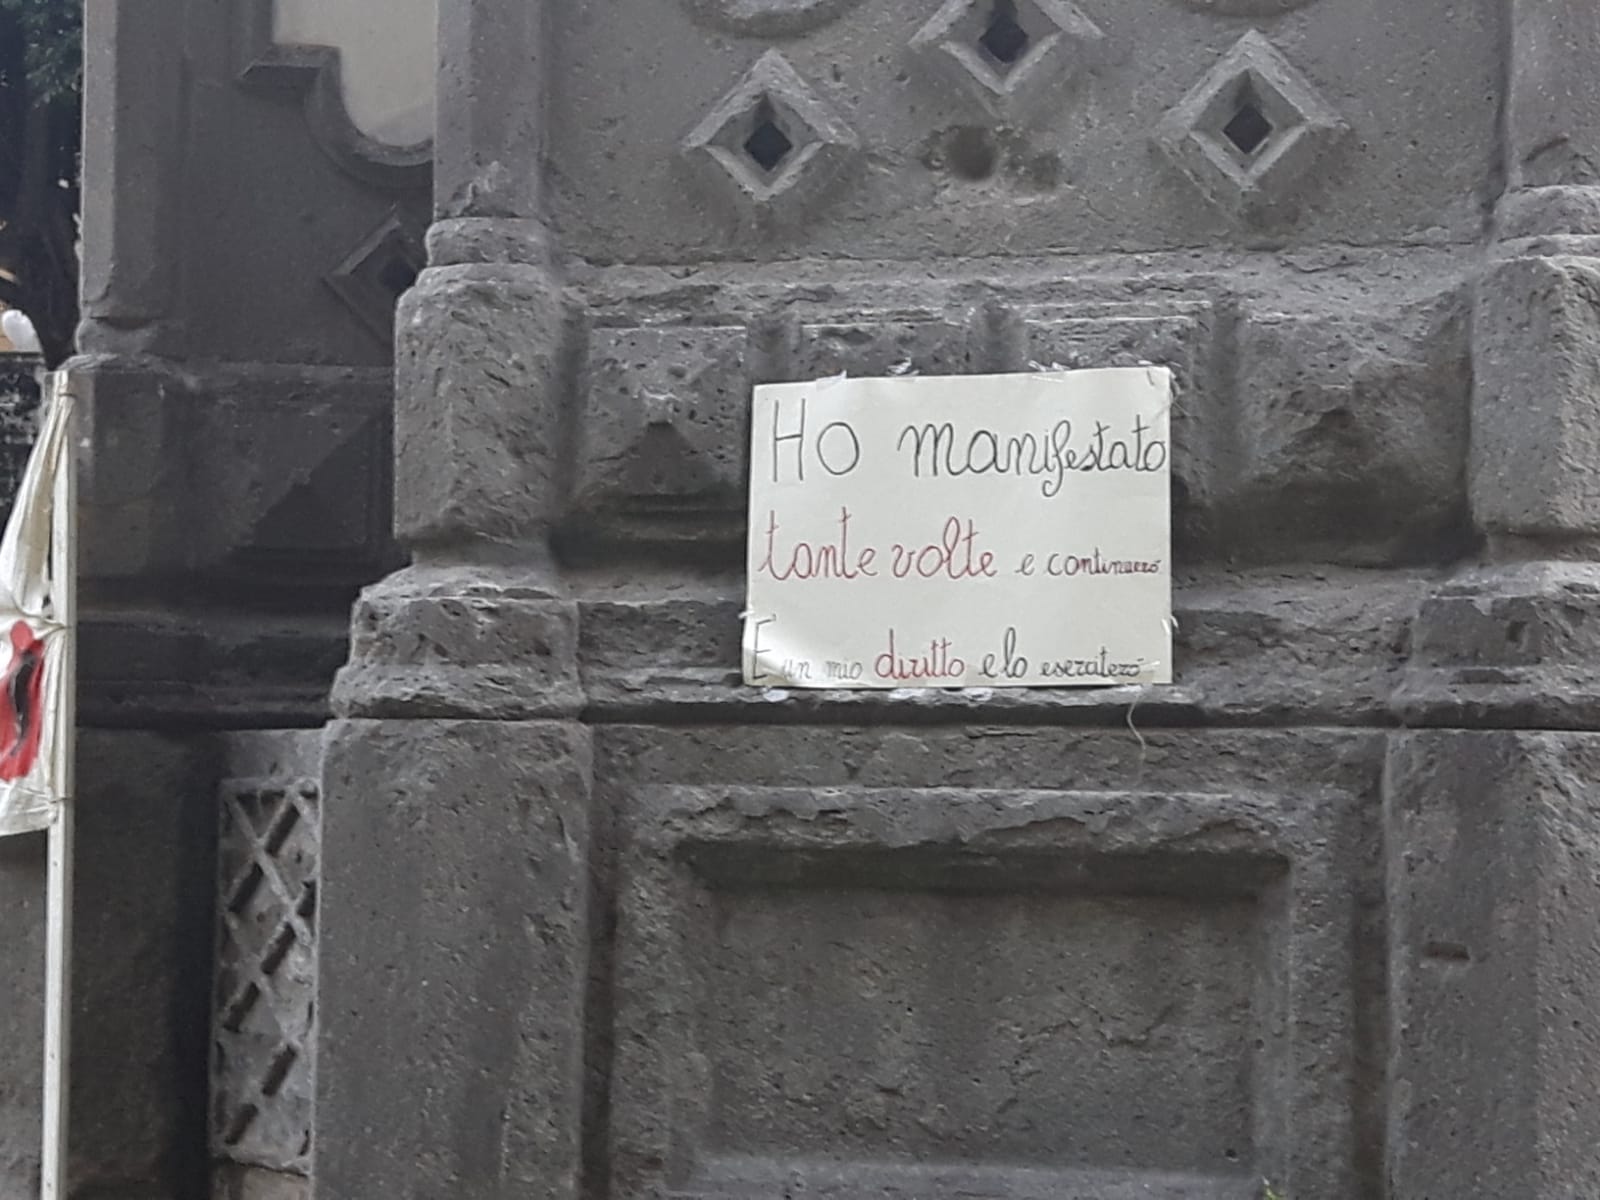 Ho manifestato
tante volte e continueró
E un mio diritto e lo eserciteró